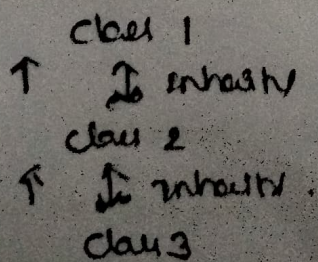 class 1
↑ ↕ inherits
class 2
↑ ↕ inherits.
class 3